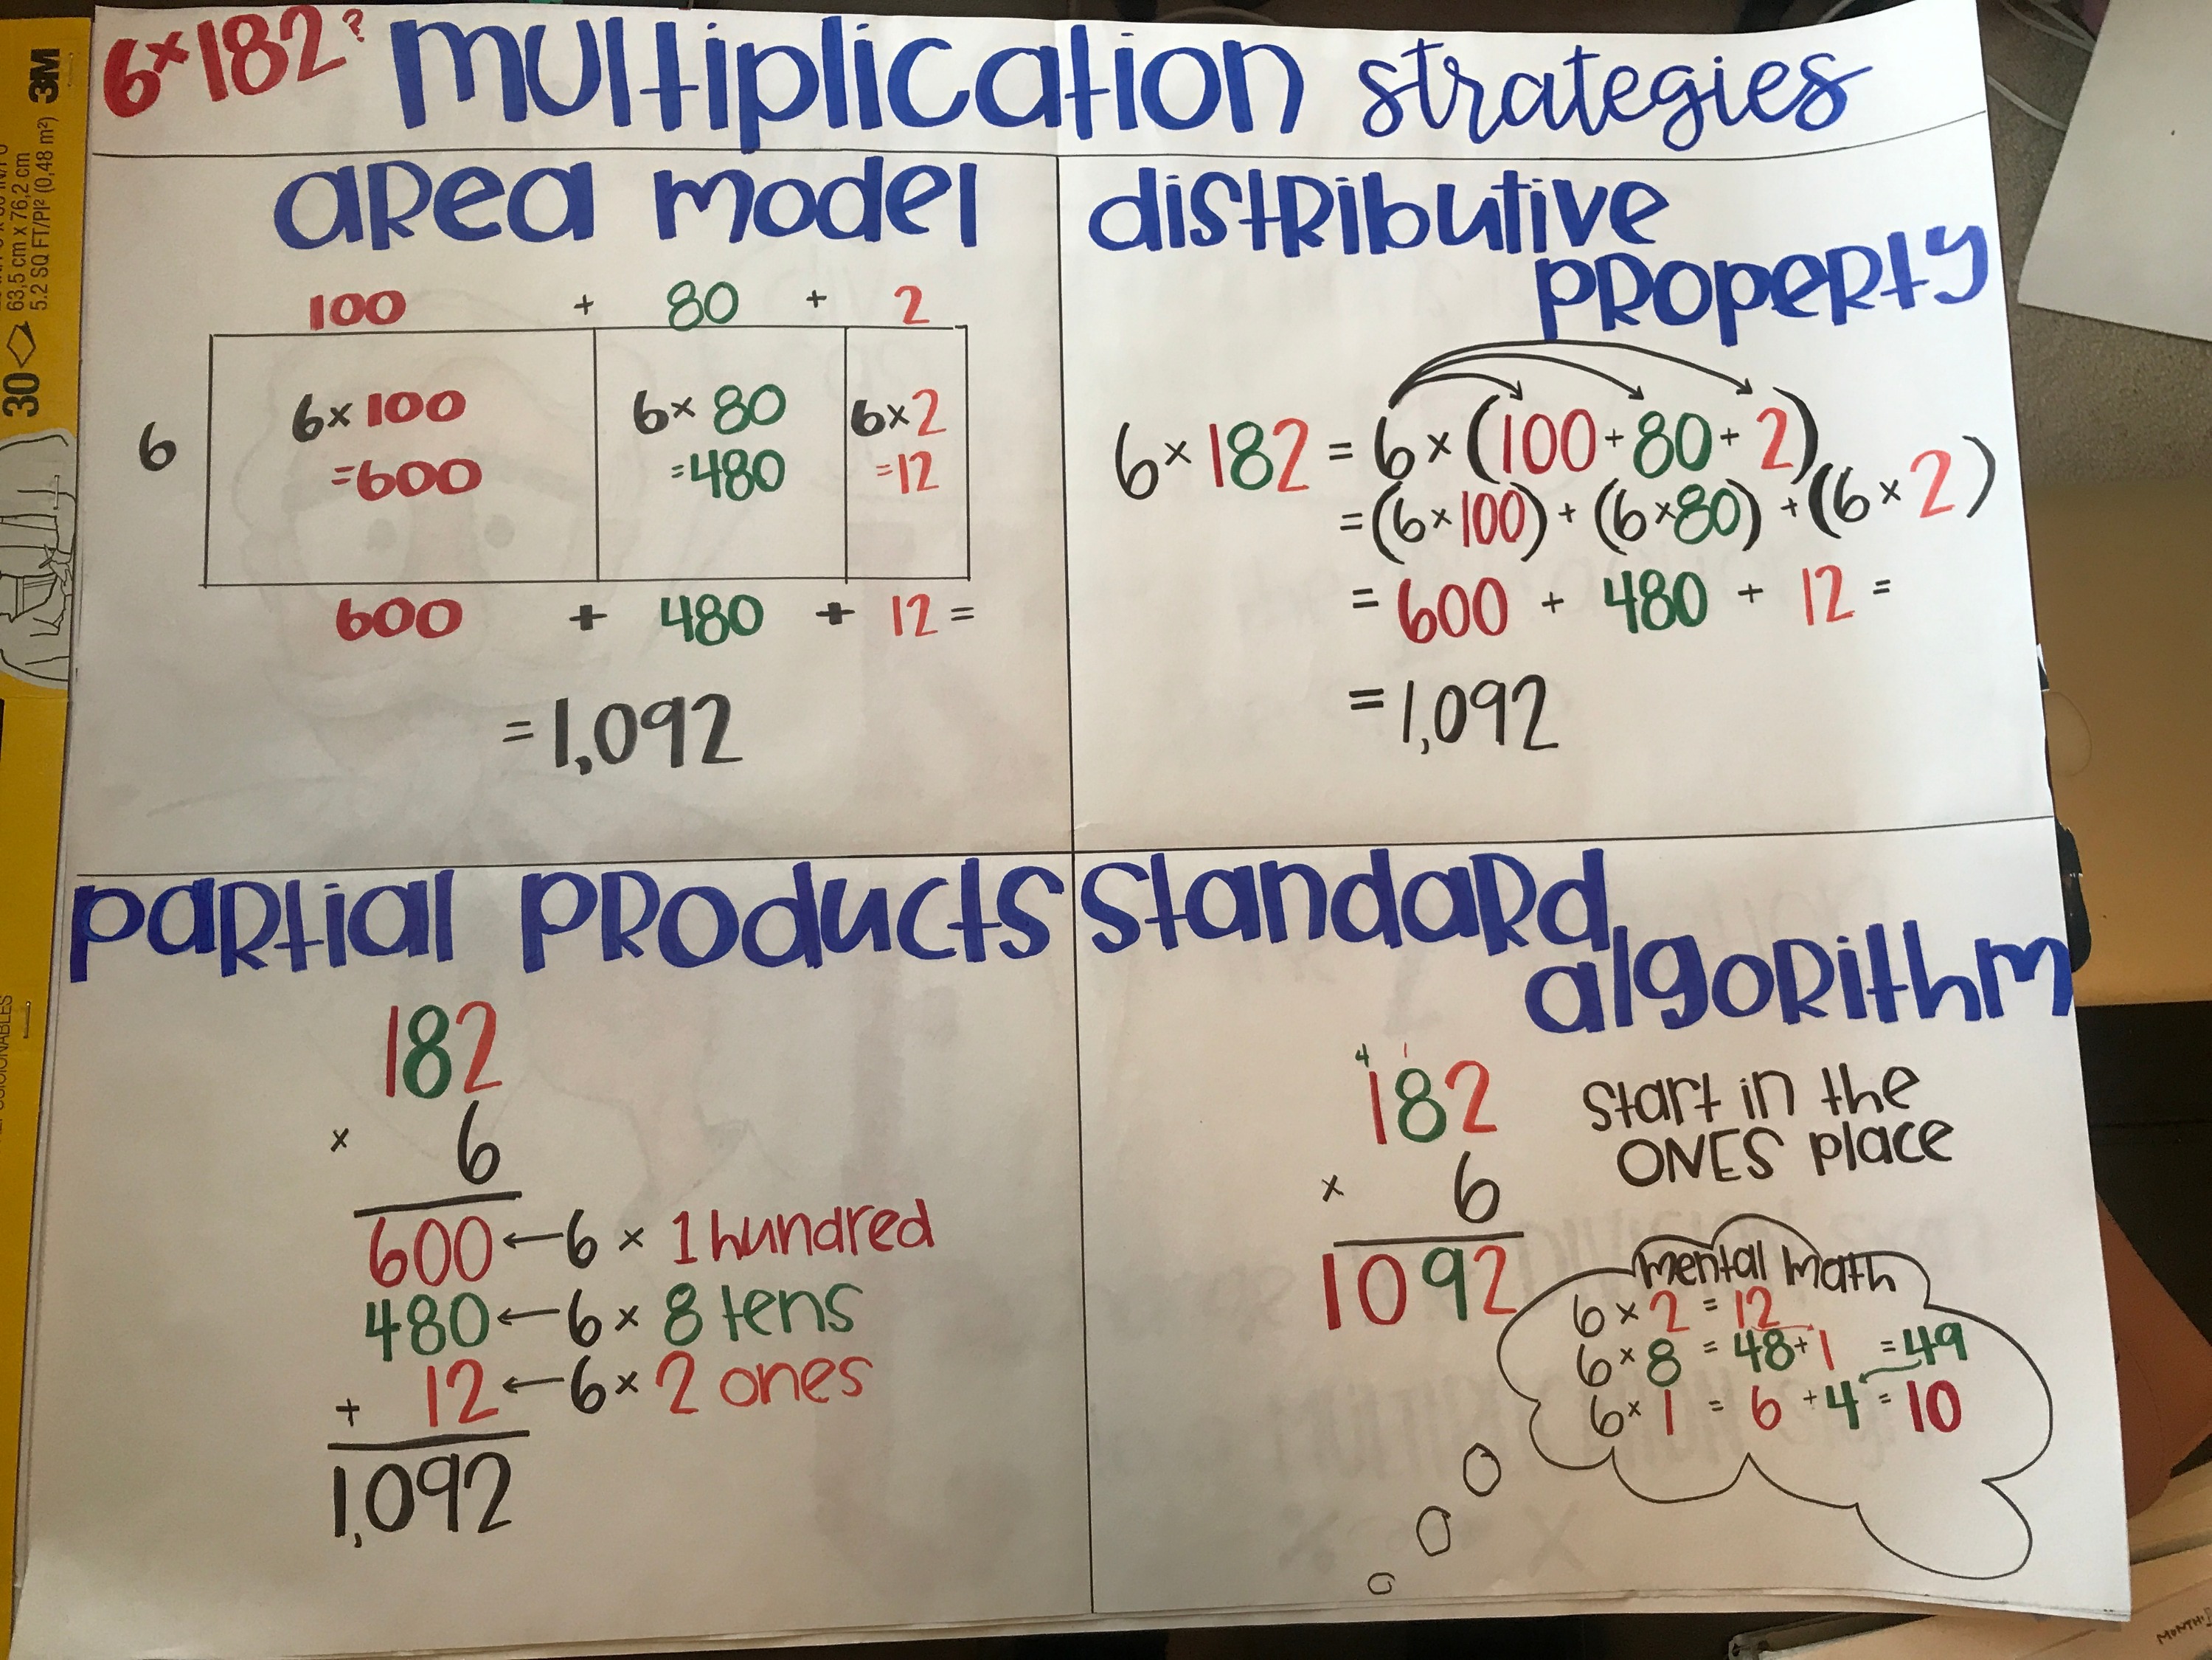 6×182?
multiplication strategies
area model
100 + 80 + 2
6
6× 100
=600
6× 80
=480
6×2
=12
600 + 480 + 12 =
=1,092
distributive
property
6×182 = 6×(100+80+2)
=(6×100)+(6×80)+(6×2)
= 600 + 480 + 12 =
=1,092
partial products
182
× 6
600←6 × 1 hundred
480←6× 8 tens
+ 12←6× 2 ones
1,092
standard
algorithm
4 1
182
× 6
1092
start in the
ONES place
mental math
6×2 = 12
6×8 = 48+1 =49
6×1 = 6 +4 = 10
3M
30
63,5 cm x 76,2 cm
5.2 SQ FT/PI² (0,48 m²)